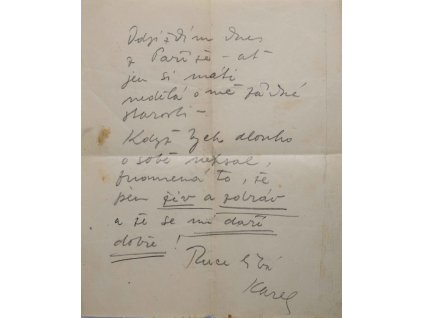 Odjíždím dnes
z Paříže – ať
jen si máti
nedělá o mě žádné
starosti –
Když bych dlouho
o sobě nepsal,
znamená to, že
jsem živ a zdráv
a že se mi daří
dobře!
Ruce líbá
Karel